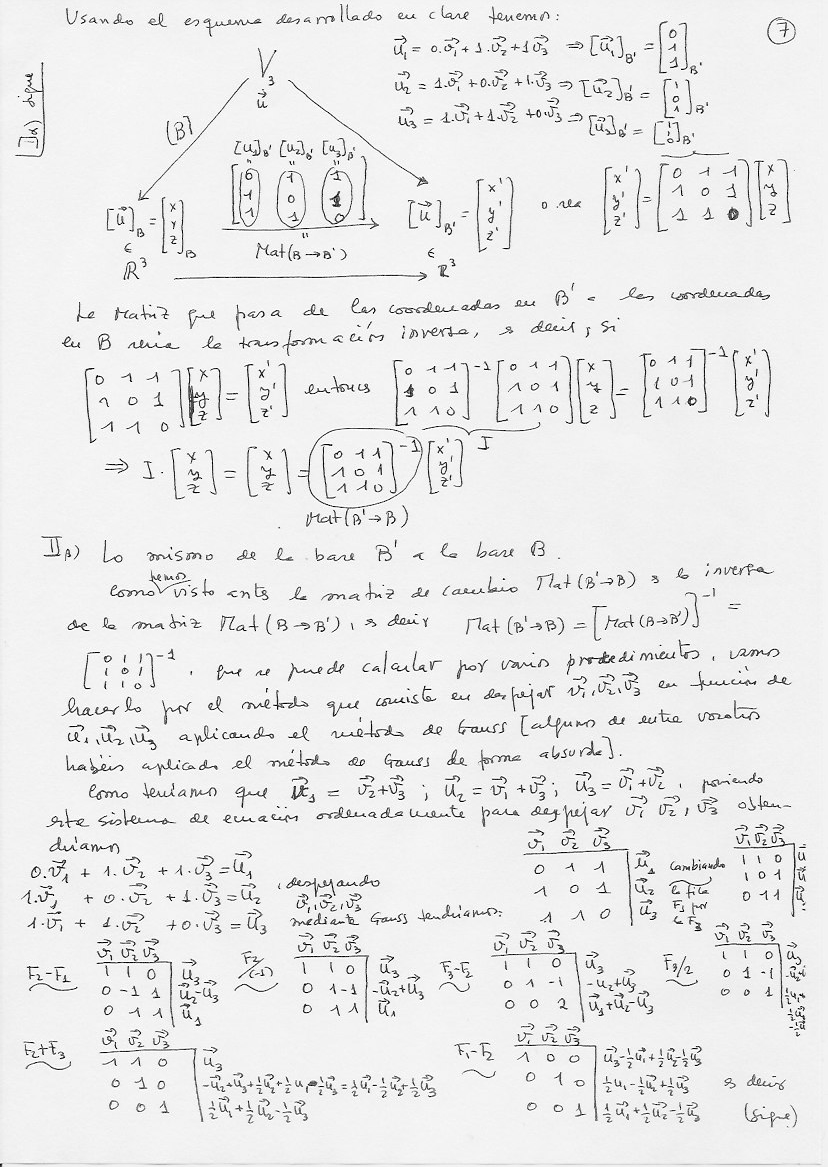 Usando el esquema desarrollado en clase tenemos:
7
Iα) sigue
V₃
u⃗
[B]
u⃗₁ = 0.v⃗₁ + 1.v⃗₂ + 1v⃗₃ ⇒ [u⃗₁]B' = [0 1 1]B'
u⃗₂ = 1.v⃗₁ + 0.v⃗₂ + 1.v⃗₃ ⇒ [u⃗₂]B' = [1 0 1]B'
u⃗₃ = 1.v⃗₁ + 1.v⃗₂ + 0.v⃗₃ ⇒ [u⃗₃]B' = [1 1 0]B'
[u₁]B' [u₂]B' [u₃]B'
" " "
[0 1 1
1 0 1
1 1 0]
"
Mat(B→B')
[u⃗]B = [x y z]B
[u⃗]B' = [x' y' z'] o sea [x' y' z'] = [0 1 1; 1 0 1; 1 1 0] [x y z]
∈ ∈
ℝ³ → ℝ³
La matriz que pasa de las coordenadas en B' a las coordenadas
en B sería la transformación inversa, es decir, si
[0 1 1; 1 0 1; 1 1 0] [x y z] = [x' y' z'] entonces [0 1 1; 1 0 1; 1 1 0]⁻¹ [0 1 1; 1 0 1; 1 1 0] [x y z] = [0 1 1; 1 0 1; 1 1 0]⁻¹ [x' y' z']
I
⇒ I · [x y z] = [x y z] = [0 1 1; 1 0 1; 1 1 0]⁻¹ [x' y' z']
Mat(B'→B)
IIβ) Lo mismo de la base B' a la base B.
Como hemos visto antes la matriz de cambio Mat(B'→B) es la inversa
de la matriz Mat(B→B'), es decir Mat(B'→B) = [Mat(B→B')]⁻¹ =
[0 1 1; 1 0 1; 1 1 0]⁻¹, que se puede calcular por varios procedimientos, vamos
hacerlo por el método que consiste en despejar v⃗₁, v⃗₂, v⃗₃ en función de
u⃗₁, u⃗₂, u⃗₃ aplicando el método de Gauss [algunos de entre vosotros
habéis aplicado el método de Gauss de forma absurda].
Como teníamos que u⃗₁ = v⃗₂+v⃗₃ ; u⃗₂ = v⃗₁+v⃗₃ ; u⃗₃ = v⃗₁+v⃗₂, poniendo
este sistema de ecuación ordenadamente para despejar v⃗₁ v⃗₂, v⃗₃ obten-
dríamos
0.v⃗₁ + 1.v⃗₂ + 1.v⃗₃ = u⃗₁
1.v⃗₁ + 0.v⃗₂ + 1.v⃗₃ = u⃗₂
1.v⃗₁ + 1.v⃗₂ + 0.v⃗₃ = u⃗₃
, despejando
v⃗₁, v⃗₂, v⃗₃
mediante Gauss tendríamos:
v⃗₁ v⃗₂ v⃗₃
0 1 1 | u⃗₁
1 0 1 | u⃗₂
1 1 0 | u⃗₃
cambiando
la fila
F₁ por
la F₃
v⃗₁ v⃗₂ v⃗₃
1 1 0 | u⃗
1 0 1 | u⃗
0 1 1 | u⃗
F₂-F₁
v⃗₁ v⃗₂ v⃗₃
1 1 0 | u⃗₃
0 -1 1 | u⃗₂-u⃗₃
0 1 1 | u⃗₁
F₂/(-1)
v⃗₁ v⃗₂ v⃗₃
1 1 0 | u⃗₃
0 1 -1 | -u⃗₂+u⃗₃
0 1 1 | u⃗₁
F₃-F₂
v⃗₁ v⃗₂ v⃗₃
1 1 0 | u⃗₃
0 1 -1 | -u₂+u⃗₃
0 0 2 | u⃗₁+u⃗₂-u⃗₃
F₃/2
v⃗₁ v⃗₂ v⃗₃
1 1 0
0 1 -1
0 0 1
F₂+F₃
v⃗₁ v⃗₂ v⃗₃
1 1 0 | u⃗₃
0 1 0 | -u⃗₂+u⃗₃+½u⃗₂+½u₁-½u⃗₃ = ½u⃗₁-½u⃗₂+½u⃗₃
0 0 1 | ½u⃗₁+½u⃗₂-½u⃗₃
F₁-F₂
v⃗₁ v⃗₂ v⃗₃
1 0 0 | u⃗₃-½u⃗₁+½u⃗₂-½u⃗₃
0 1 0 | ½u₁-½u⃗₂+½u⃗₃
0 0 1 | ½u⃗₁+½u⃗₂-½u⃗₃
es decir
(sigue)